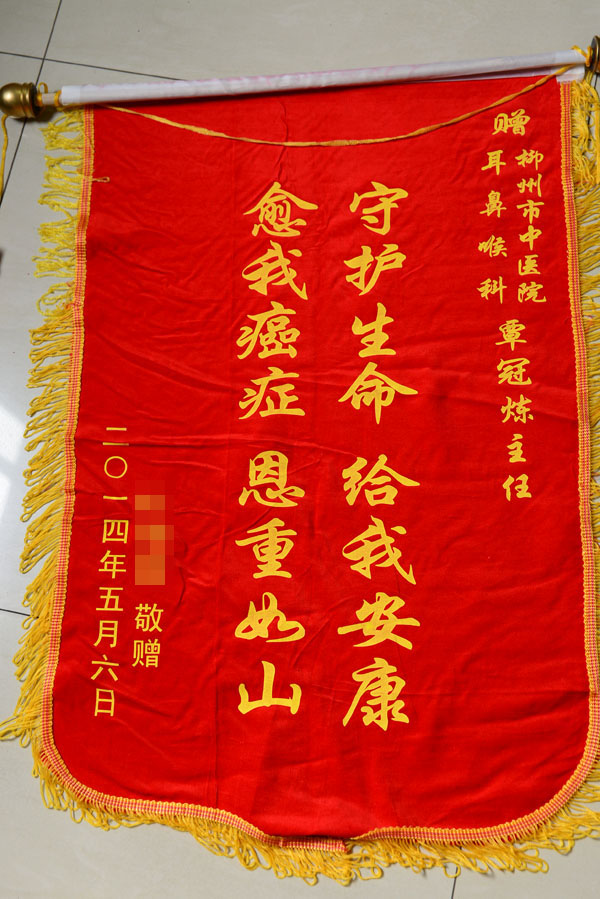 赠 柳州市中医院
耳鼻喉科 覃冠炼主任
守护生命 给我安康
愈我癌症 恩重如山
敬赠
二〇一四年五月六日